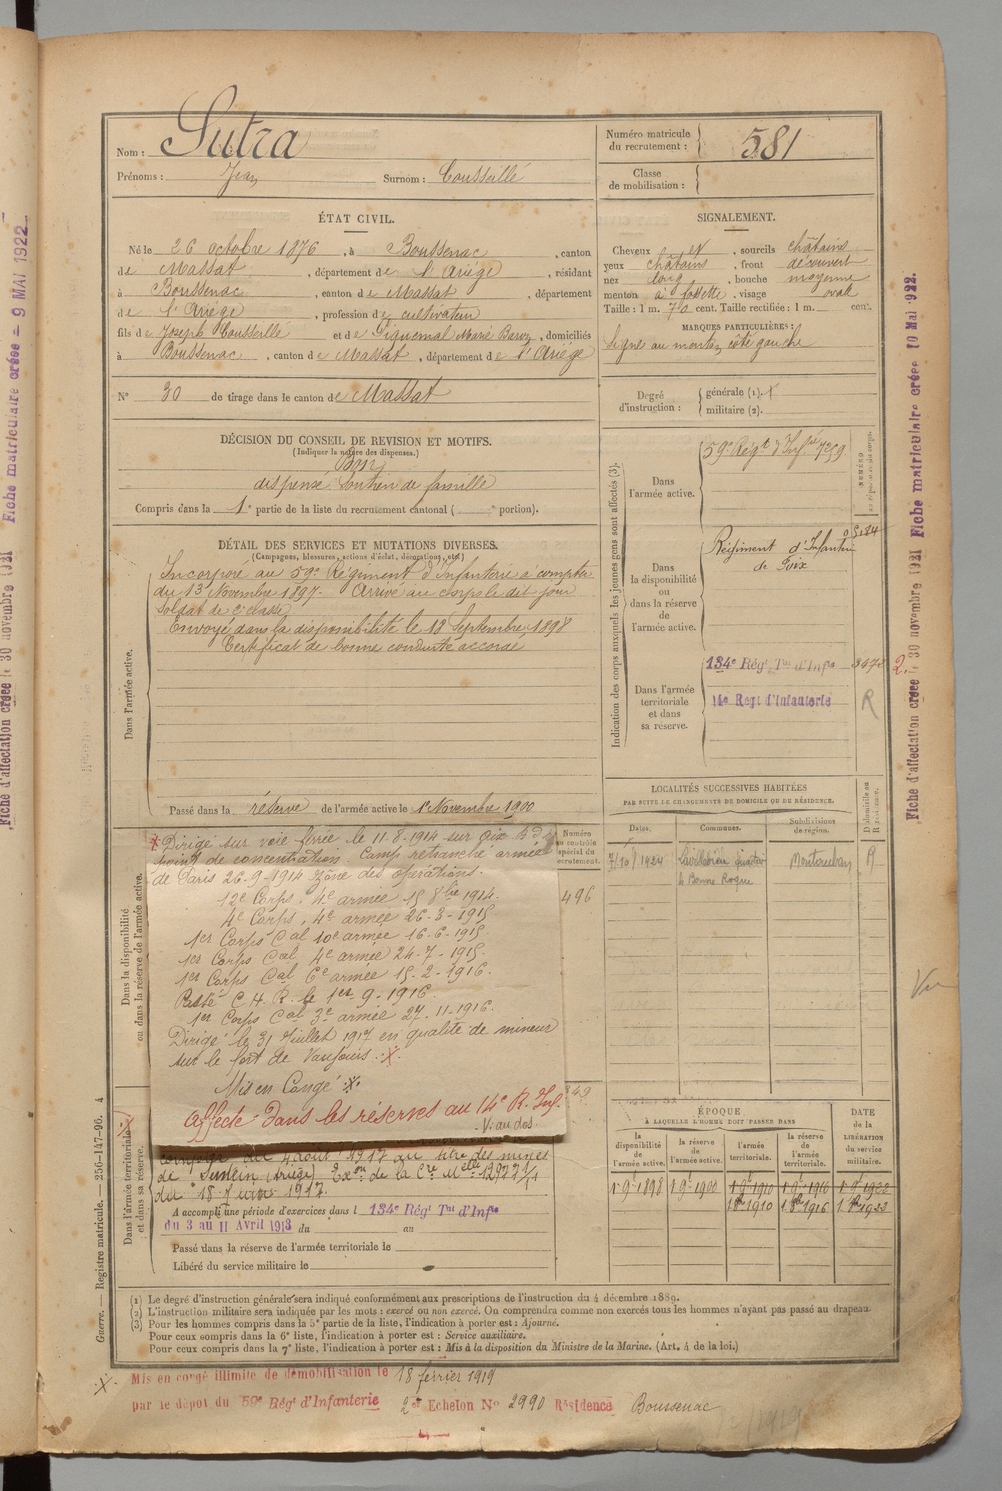 Nom : Sutra
Prénoms : Jean Surnom : Cousseillé
Numéro matricule du recrutement : 581
Classe de mobilisation :
ÉTAT CIVIL.
Né le 26 octobre 1876, à Boussenac, canton
de Massat, département de l'Ariège, résidant
à Boussenac, canton de Massat, département
de l'Ariège, profession de cultivateur
fils de Joseph Cousseille et de Piquemal Marie, domiciliés
à Boussenac, canton de Massat, département de l'Ariège
SIGNALEMENT.
Cheveux et, sourcils châtains
yeux châtains, front découvert
nez long, bouche moyenne
menton à fossette, visage ovale
Taille : 1 m. 70 cent. Taille rectifiée : 1 m. cent.
MARQUES PARTICULIÈRES :
Signe au menton côté gauche
N° 30 de tirage dans le canton de Massat
Degré d'instruction : générale (1).
militaire (2).
DÉCISION DU CONSEIL DE REVISION ET MOTIFS.
(Indiquer la nature des dispenses.)
Bon
dispensé Soutien de famille
Compris dans la 1e partie de la liste du recrutement cantonal ( e portion).
DÉTAIL DES SERVICES ET MUTATIONS DIVERSES.
(Campagnes, blessures, actions d'éclat, décorations, etc.)
Dans l'armée active.
Incorporé au 59e Régiment d'Infanterie à compter
du 13 Novembre 1897. Arrivé au corps le dit jour
Soldat de 2e classe
Envoyé dans la disponibilité le 18 Septembre 1898
Certificat de bonne conduite accordé
Passé dans la réserve de l'armée active le 1er Novembre 1900
Indication des corps auxquels les jeunes gens sont affectés (3).
Dans l'armée active.
59e Régt d'Infie 7259
Dans la disponibilité ou dans la réserve de l'armée active.
Régiment d'Infanterie
de Foix
Dans l'armée territoriale et dans sa réserve.
134e Régt Tal d'Infie 3472
14e Regt d'Infanterie R
LOCALITÉS SUCCESSIVES HABITÉES
PAR SUITE DE CHANGEMENTS DE DOMICILE OU DE RÉSIDENCE.
Dates. Communes. Subdivisions de région. D domicile ou R résidence.
7/10/1924 Montauban R
Bonne Roque
Dans la disponibilité ou dans la réserve de l'armée active.
Numéro au contrôle spécial du recrutement.
496
Dirigé sur voie ferrée le 11-8-1914 sur Foix
point de concentration. Camp retranché armée
de Paris 26-9-1914 zone des opérations.
12e Corps, 4e armée 15 8bre 1914.
4e Corps, 4e armée 26-3-1915
1er Corps Cal 10e armée 16-6-1915.
1er Corps Cal, 4e armée 24-7-1915.
1er Corps Cal 6e armée 15-2-1916.
Passé C.H.R. le 1er-9-1916.
1er Corps Cal 3e armée 27-11-1916.
Dirigé le 31 Juillet 1917 en qualité de mineur
sur le fort de Vaujouis.
Mis en Congé
Affecté dans les réserves au 14e R. Inf.
V. au dos.
du 4 août 1917 au titre des mines
de Sentein (Ariège)
1917.
Dans l'armée territoriale et dans sa réserve.
A accompli une période d'exercices dans l 134e Régt Tal d'Infie
du 3 au 11 Avril 1913 du au
Passé dans la réserve de l'armée territoriale le
Libéré du service militaire le
ÉPOQUE
À LAQUELLE L'HOMME DOIT PASSER DANS
la disponibilité de l'armée active. la réserve de l'armée active. l'armée territoriale. la réserve de l'armée territoriale.
DATE de la LIBÉRATION du service militaire.
1.9.1898 1.9.1900 1.9.1910 1.9.1916 1.9.1922
1910 1916
(1) Le degré d'instruction générale sera indiqué conformément aux prescriptions de l'instruction du 4 décembre 1889.
(2) L'instruction militaire sera indiquée par les mots : exercé ou non exercé. On comprendra comme non exercés tous les hommes n'ayant pas passé au drapeau.
(3) Pour les hommes compris dans la 5e partie de la liste, l'indication à porter est : Ajourné.
Pour ceux compris dans la 6e liste, l'indication à porter est : Service auxiliaire.
Pour ceux compris dans la 7e liste, l'indication à porter est : Mis à la disposition du Ministre de la Marine. (Art. 4 de la loi.)
Mis en congé illimité de démobilisation le 18 février 1919
par le dépôt du 59e Régt d'Infanterie 2e Echelon No 2990 Résidence Boussenac
Guerre. — Registre matricule. — 256-147-96. 4
Fiche d'affectation créée le 30 novembre 1921 Fiche matriculaire créée 10 Mai 922.
Fiche d'affectation créée le 30 novembre 1921 Fiche matriculaire créée = 9 MAI 1922